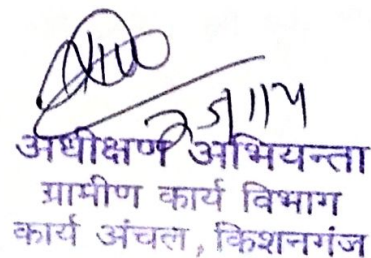 25/11/14
अधीक्षण अभियन्ता
ग्रामीण कार्य विभाग
कार्य अंचल, किशनगंज